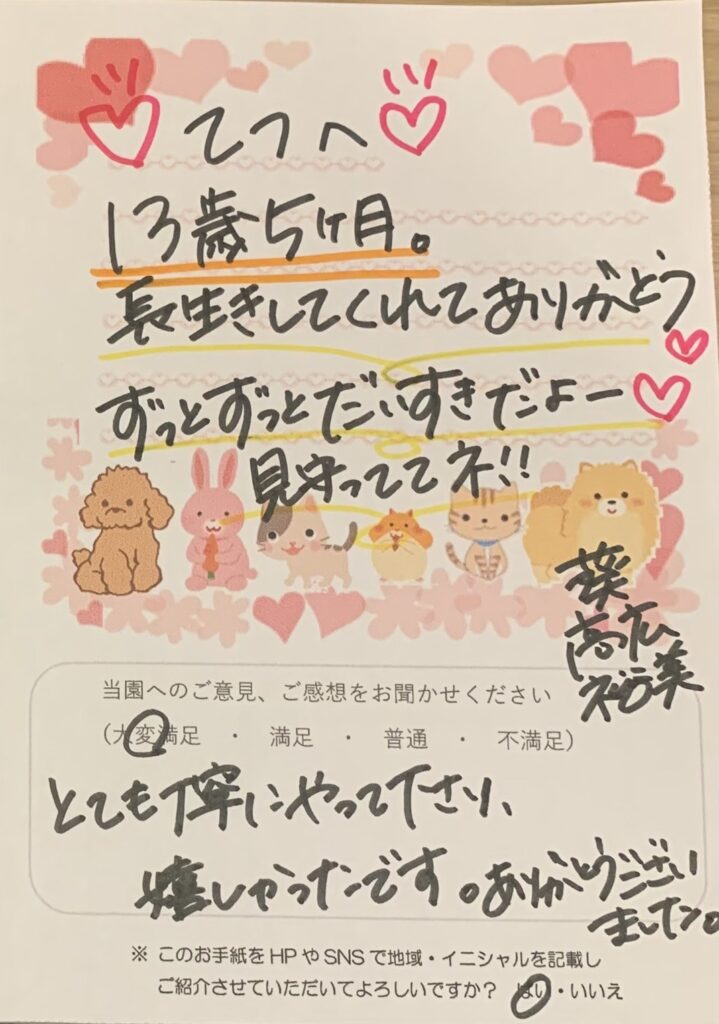 てつへ
13歳5ヶ月。
長生きしてくれてありがとう
ずっとずっとだいすきだよー
見守っててネ!!
葵
高広
裕美
当園へのご意見、ご感想をお聞かせください
(大変満足 ・ 満足 ・ 普通 ・ 不満足)
とても丁寧にやって下さり、
嬉しかったです。ありがとうござい
ました。
※ このお手紙をHPやSNSで地域・イニシャルを記載し
ご紹介させていただいてよろしいですか? はい・いいえ